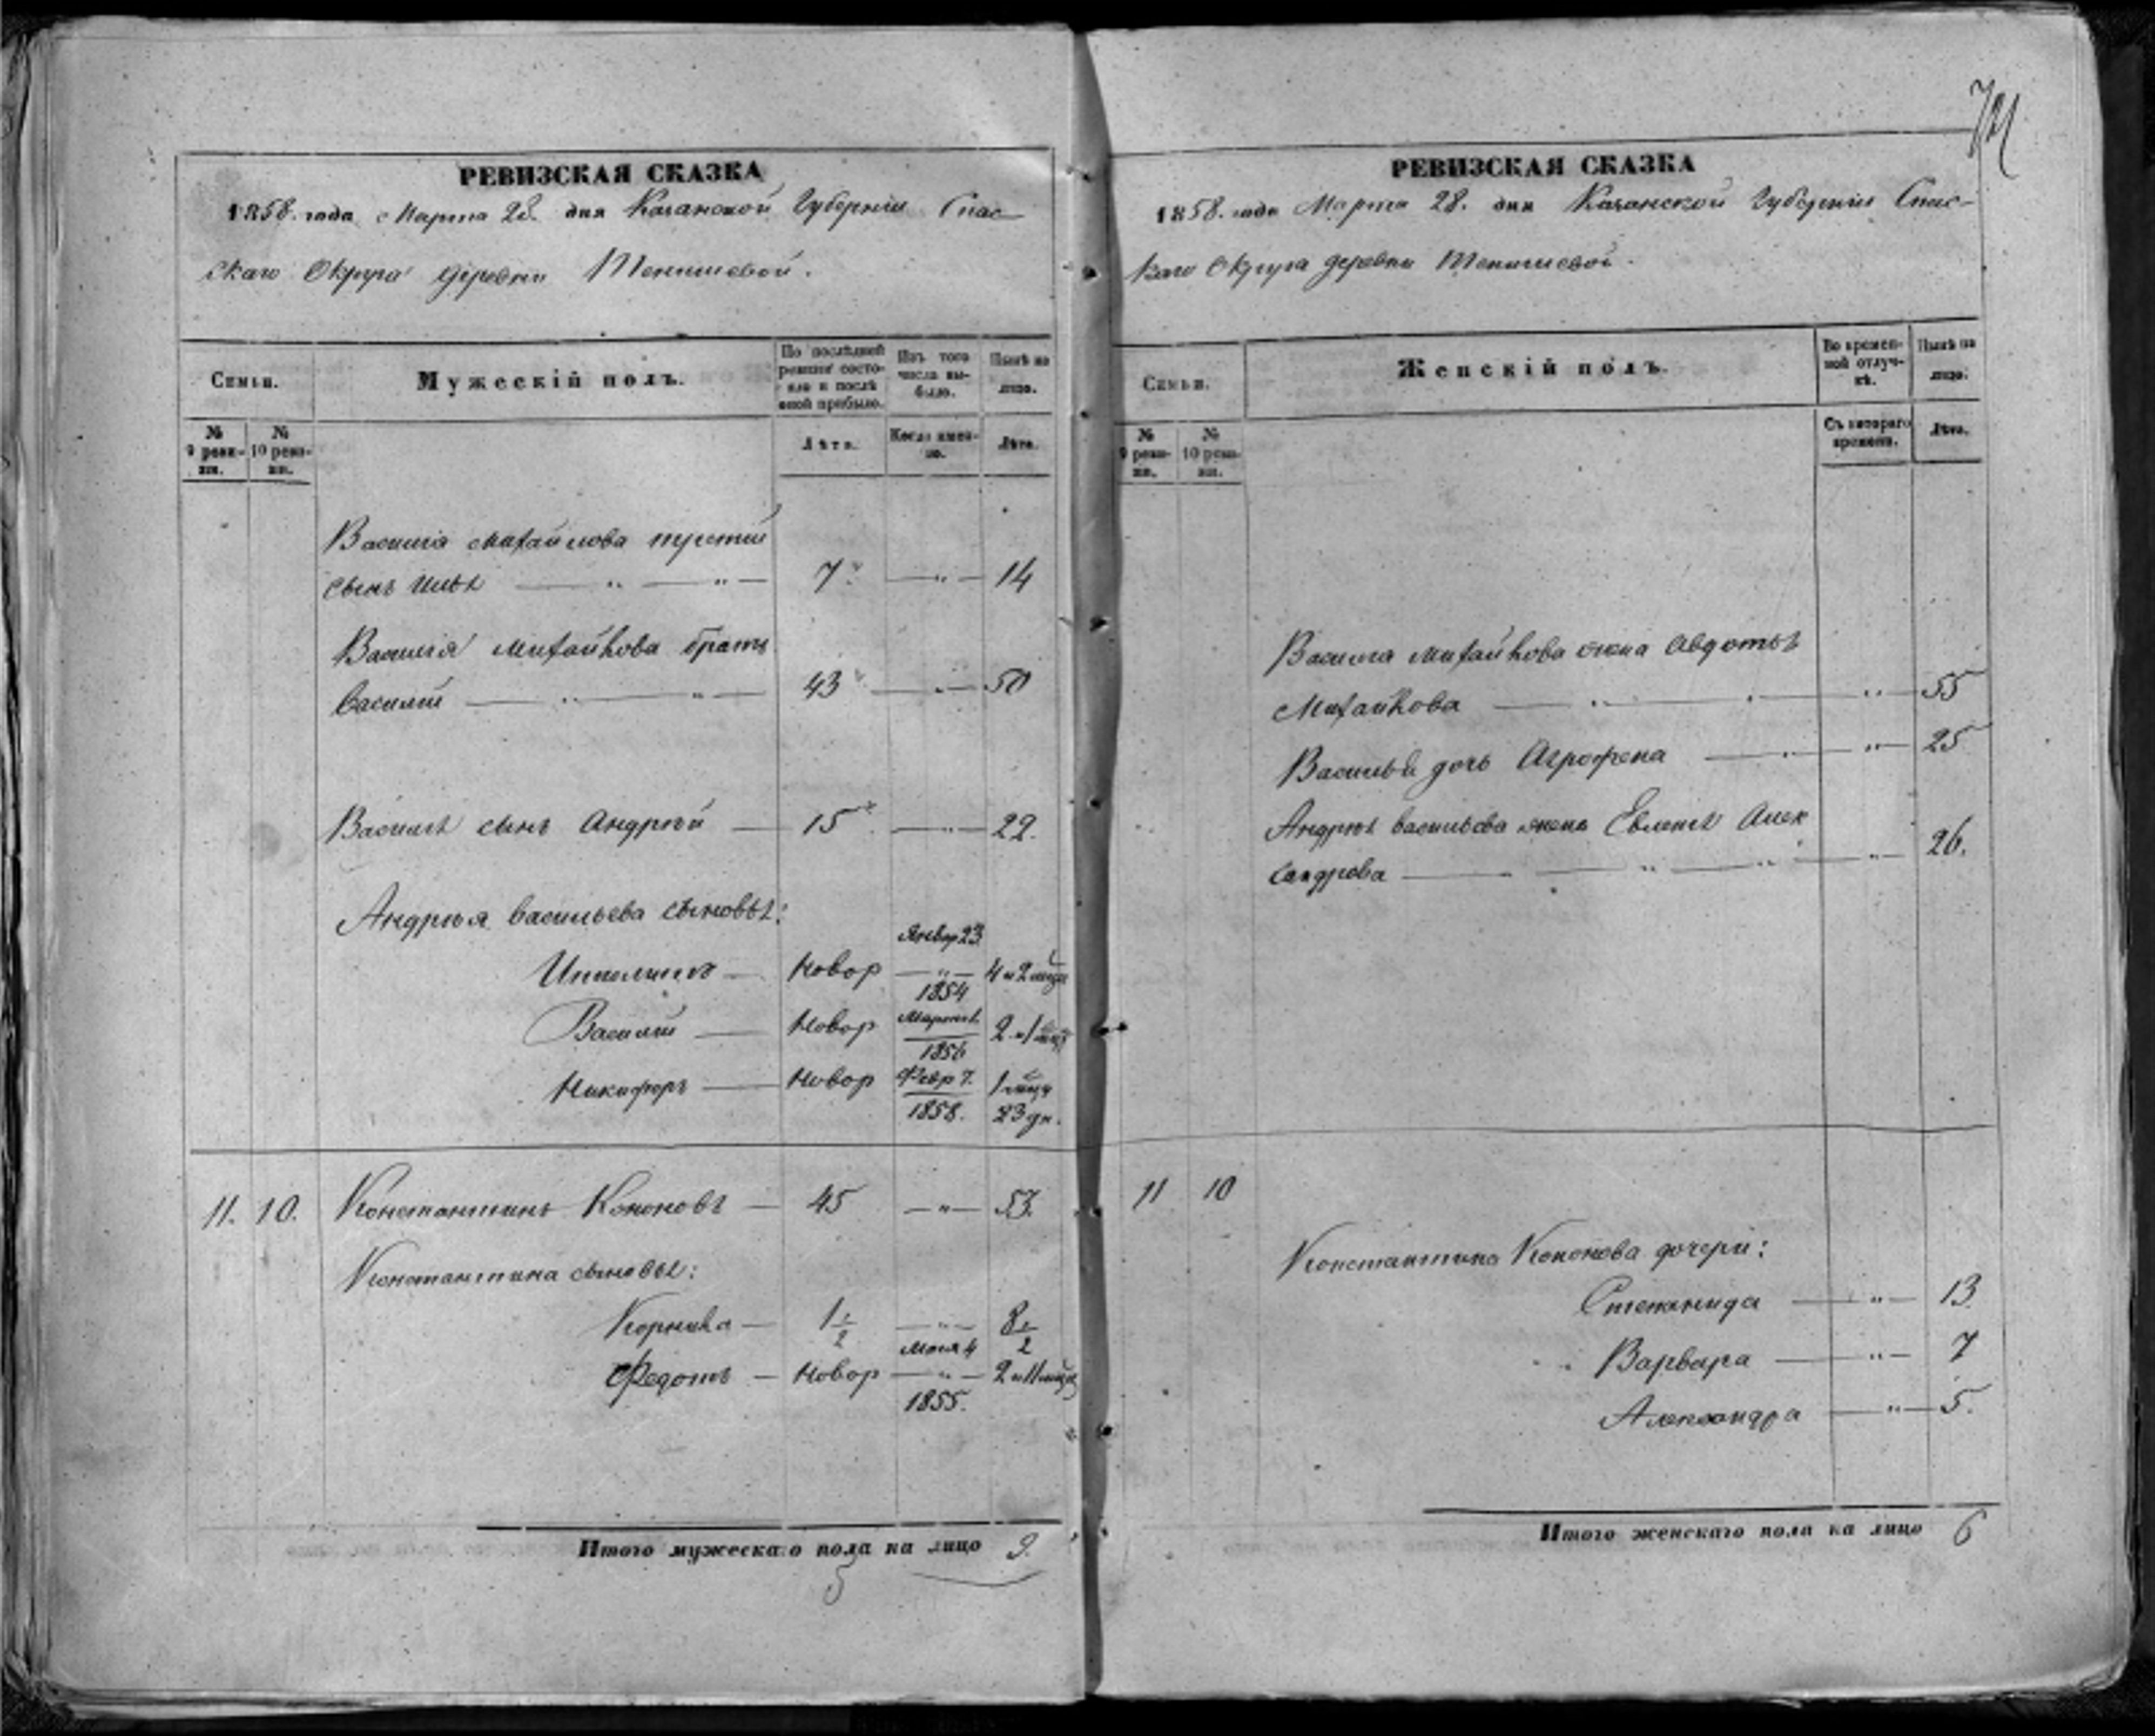 721
РЕВИЗСКАЯ СКАЗКА
1858. года Марта 28. дня Казанской Губерніи Спас
скаго Округа деревни Тенишевой.
Семьи.
Мужескій полъ.
По послѣдней ревизіи состояло и послѣ оной прибыло.
Изъ того числа выбыло.
Нынѣ на лицо.
№ 9 ревизіи.
№ 10 ревизіи.
Лѣта.
Когда именно.
Лѣта.
Василія Михайлова третій
сынъ 7 14
Василія Михайлова братъ
Василій 43 50
сынъ Андрѣй 15 22.
Андрѣя Васильева сыновья:
Январ 23
Новор 1854 4 и 2 мѣся
Василій Новор Марта 1. 1856 2 и 1 мѣц
Никифоръ Новор Февр 7. 1858. 1 мѣця 23 дн.
11. 10. Константинъ Кононовъ 45 53.
Константина сыновья:
Корнила 1 1/2 8 1/2
Федотъ Новор Мая 4 1855. 2 и 11 мѣся
Итого мужескаго пола на лицо 9.
РЕВИЗСКАЯ СКАЗКА
1858. года Марта 28. дня Казанской Губерніи Спас-
каго Округа деревни Тенишевой.
Семьи.
Женскій полъ.
Во временной отлучкѣ.
Нынѣ на лицо.
№ 9 ревизіи.
№ 10 ревизіи.
Съ котораго времени.
Лѣта.
Василія Михайлова жена Авдотья
Михайлова 55
Василья дочь Агрофена 25
Андрея Васильева жена Евгенья Алек
сандрова 26.
11 10
Константина Кононова дочери:
Степанида 13
Варвара 7
Александра 5.
Итого женскаго пола на лицо 6